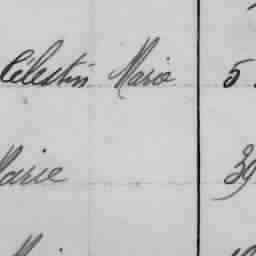 Célestin Marie 5
Marie 39